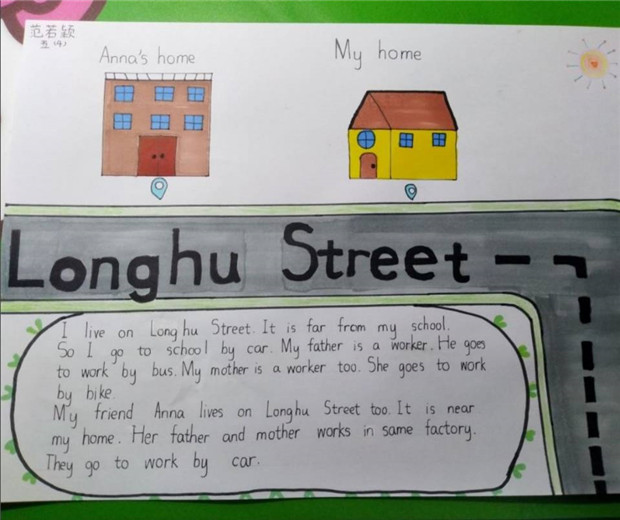 范若颖
五(4)
Anna's home
My home
Longhu Street
I live on Longhu Street. It is far from my school.
So I go to school by car. My father is a worker. He goes
to work by bus. My mother is a worker too. She goes to work
by bike.
My friend Anna lives on Longhu Street too. It is near
my home. Her father and mother works in same factory.
They go to work by car.